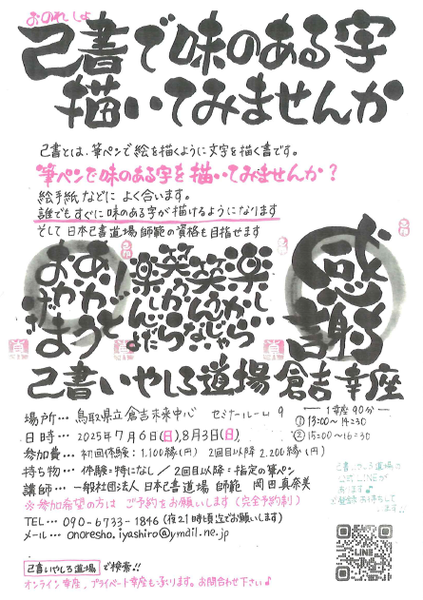 おのれしょ
己書で味のある字
描いてみませんか
己書とは、筆ペンで絵を描くように文字を描く書です。
筆ペンで味のある字を描いてみませんか？
絵手紙などに よく合います。
誰でもすぐに味のある字が描けるようになります
そして 日本己書道場 師範の資格も目指せます
おかげさま
ありがとう
楽しいから
笑うんじゃ
ない
笑うから
楽しいんだ
感謝
己書いやしろ道場 倉吉幸座
場所… 鳥取県立倉吉未来中心 セミナールーム9
日時… 2025年7月6日(日),8月3日(日)
ー1幸座 90分ー
①13:00〜14:30
②15:00〜16:30
参加費… 初回体験：1,100縁(円) 2回目以降 2,200縁(円)
持ち物… 体験：特になし / 2回目以降：指定の筆ペン
講師… 一般社団法人 日本己書道場 師範 岡田真奈美
※参加希望の方は ご予約をお願いします(完全予約制)
TEL… 090-6733-1846 (夜21時頃迄でお願いします)
メール… onoresho.iyashiro@ymail.ne.jp
己書いやしろ道場の
公式LINEが
あります♪
LINE
己書いやしろ道場 で検索!!
オンライン幸座、プライベート幸座も承ります。お問合わせ下さい♪